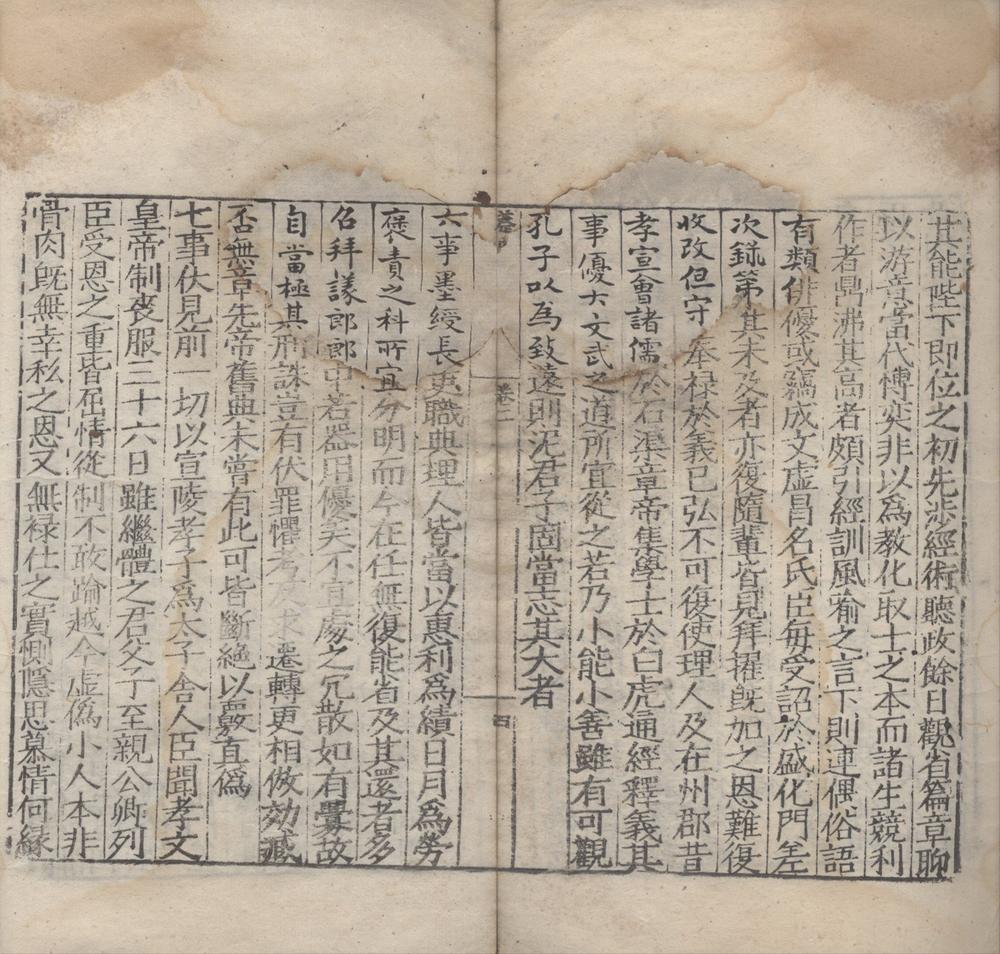 其能陛下即位之初先涉經術聽政餘日觀省篇章聊
以游意當代博奕非以為教化取士之本而諸生競利
作者鼎沸其高者頗引經訓風喻之言下則連偶俗語
有類俳優或竊成文虛冒名氏臣每受詔於盛化門差
次錄第其未及者亦復隨輩皆見拜擢旣加之恩難復
收改但守奉祿於義已弘不可復使理人及在州郡昔
孝宣會諸儒於石渠章帝集學士於白虎通經釋義其
事優大文武之道所宜從之若乃小能小善雖有可觀
孔子以為致遠則泥君子固當志其大者
卷二
四
六事墨綬長吏職典理人皆當以惠利為績日月為勞
褒責之科所宜分明而今在任無復能省及其還者多
召拜議郎郎中若器用優美不宜處之冗散如有釁故
自當極其刑誅豈有伏罪懼考反求遷轉更相倣效臧
否無章先帝舊典未嘗有此可皆斷絕以覈真偽
七事伏見前一切以宣陵孝子為太子舍人臣聞孝文
皇帝制喪服三十六日雖繼體之君父子至親公卿列
臣受恩之重皆屈情從制不敢踰越今虛偽小人本非
骨肉旣無幸私之恩又無祿仕之實惻隱思慕情何緣